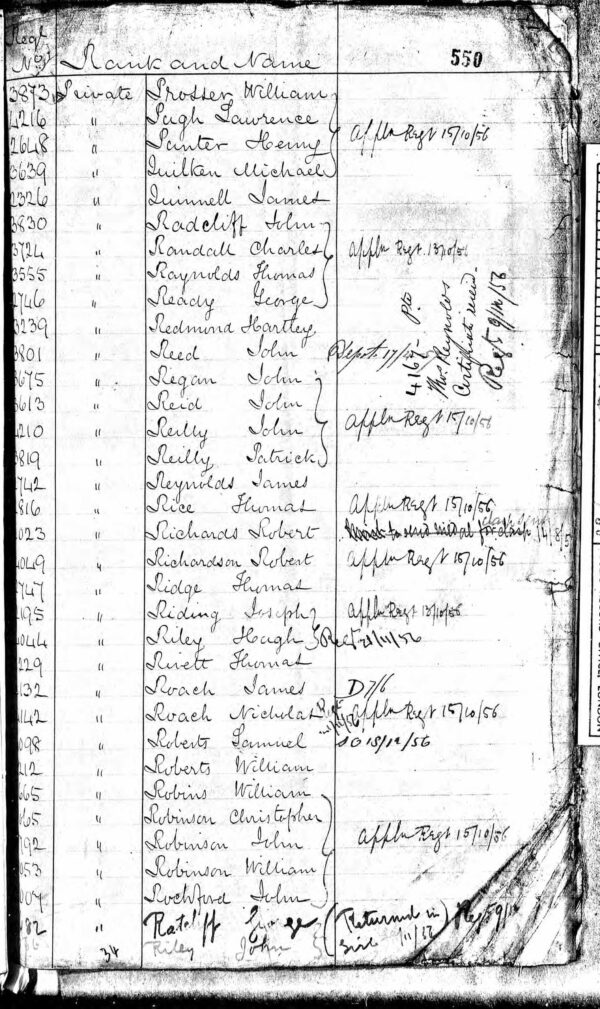 Regtl
No Rank and Name 550
3873 Private Prosser William
4216 " Pugh Lawrence
2648 " Punter Henry Appln Regt 15/10/56
3639 " Quilken Michael
2326 " Quinnell James
3830 " Radcliff John
3724 " Randall Charles Appln Regt 15/10/56
3555 " Raynolds Thomas
746 " Ready George
3239 " Redmond Hartley
3801 " Reed John Depot
4167 Pte
Thos Reynolds
Certificate
Regt
3675 " Regan John
3613 " Reid John
210 " Reilly John Appln Regt 15/10/56
3819 " Reilly Patrick
742 " Reynolds James
816 " Rice Thomas Appln Regt 15/10/56
023 " Richards Robert
049 " Richardson Robert Appln Regt 15/10/56
747 " Ridge Thomas
195 " Riding Joseph Appln Regt 15/10/56
044 " Riley Hugh Rect 21/11/56
229 " Rivett Thomas
132 " Roach James D 7/6
142 " Roach Nicholas Appln Regt 15/10/56
098 " Roberts Samuel
212 " Roberts William
665 " Robins William
865 " Robinson Christopher
792 " Robinson John Appln Regt 15/10/56
053 " Robinson William
007 " Rochford John
82 " Ratcliff George (Returned in
34 Riley John